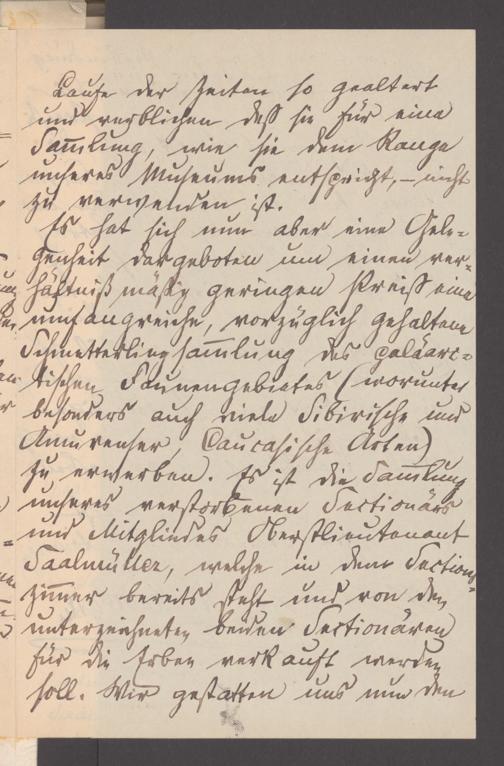 Laufe der Zeiten so gealtert
und verblichen daß sie für eine
Sam̄lung, wie sie dem Range
unseres Museums entspricht, – nicht
zu verwenden ist.
Es hat sich nun aber eine Gele=
genheit dargeboten um einen ver=
hältnißmäßig geringen Preiß eine
umfangreiche, vorzüglich gehaltene
Schmetterlingsam̄lung des paläarc=
tischen Faunengebietes (worunter
besonders auch viele Sibirische und
Amurenser, Caucasische Arten)
zu erwerben. Es ist die Sam̄lung
unseres verstorbenen Sectionärs
und Mitgliedes Oberstlieutenant
Saalmüller, welche in dem Sections=
zim̄er bereits steht und von den
unterzeichneten beiden Sectionären
für die Erben verkauft werden
soll. Wir gestatten uns nun den